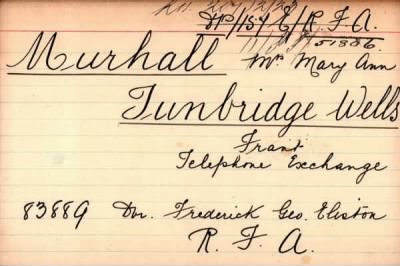 DP/154 E/R.F.A.
51886
Murhall Mrs Mary Ann
Tunbridge Wells
Frant
Telephone Exchange
83889 Dvr. Frederick Geo. Eliston
R. F. A.